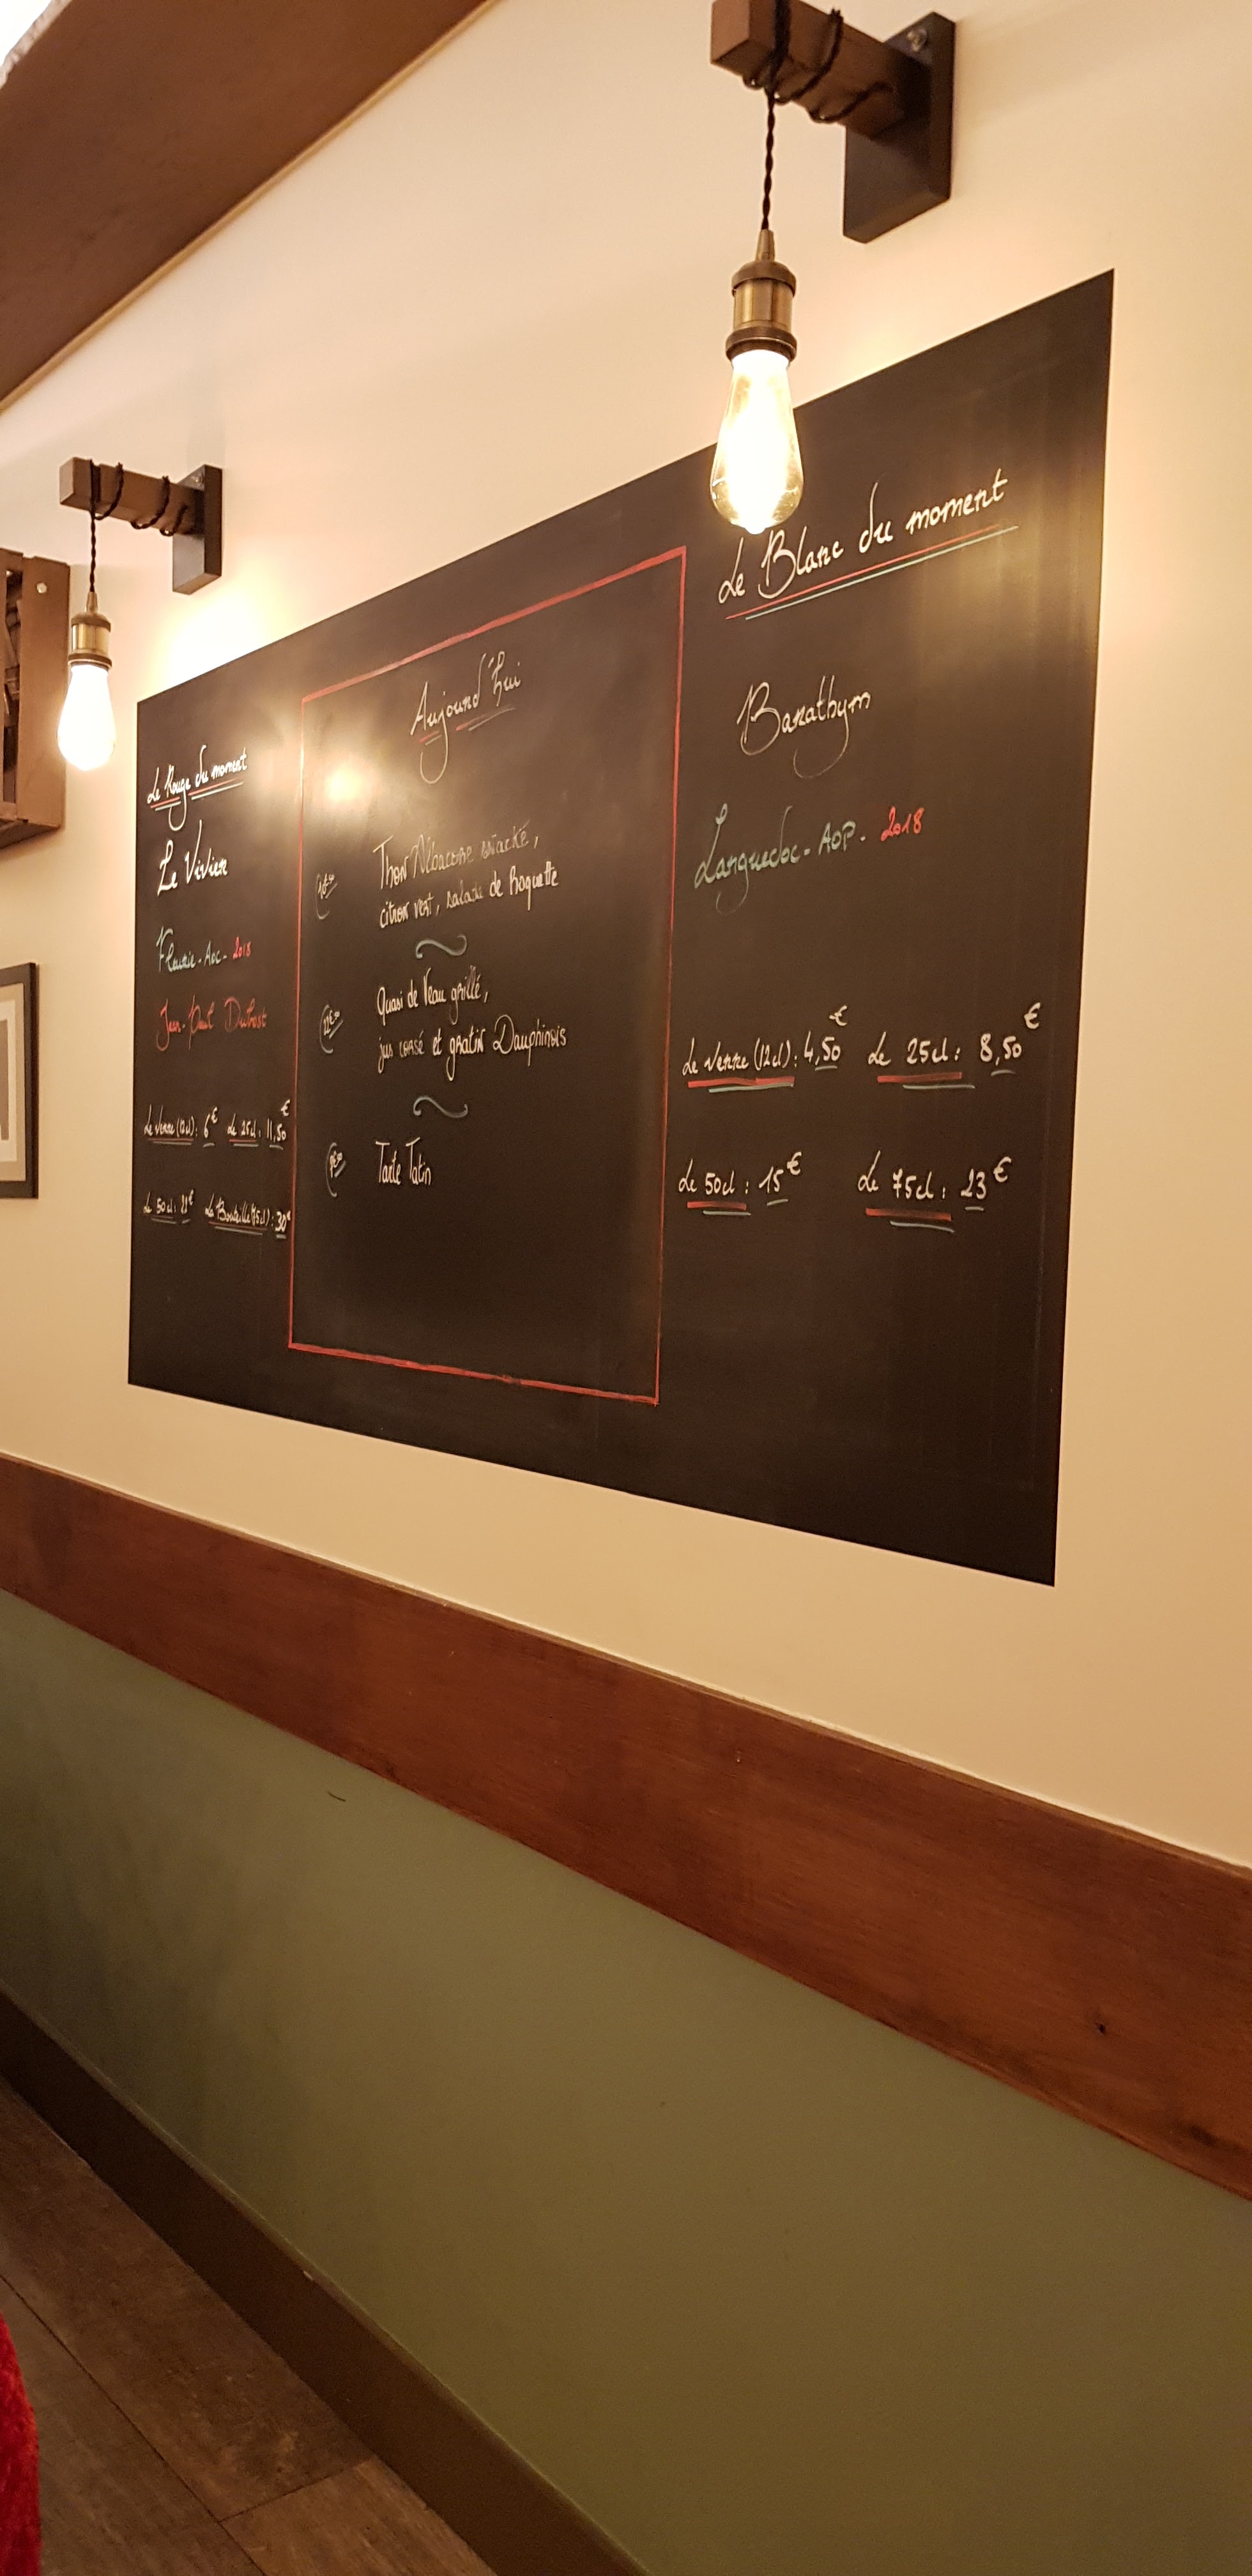 Le Rouge du moment
Le Vivier
Fleurie - Aoc - 2018
Jean-Paul Dubost
Le Verre (12cl) : 6€ Le 25cl : 11,50€
Le 50cl : 22€ La Bouteille (75cl) : 30€
Aujourd'hui
Thon Albacore snacké,
citron vert, salade de Roquette
Quasi de Veau grillé,
jus corsé et gratin Dauphinois
Tarte Tatin
Le Blanc du moment
Barathym
Languedoc - AOP - 2018
Le Verre (12cl) : 4,50€ Le 25cl : 8,50€
Le 50cl : 15€ Le 75cl : 23€